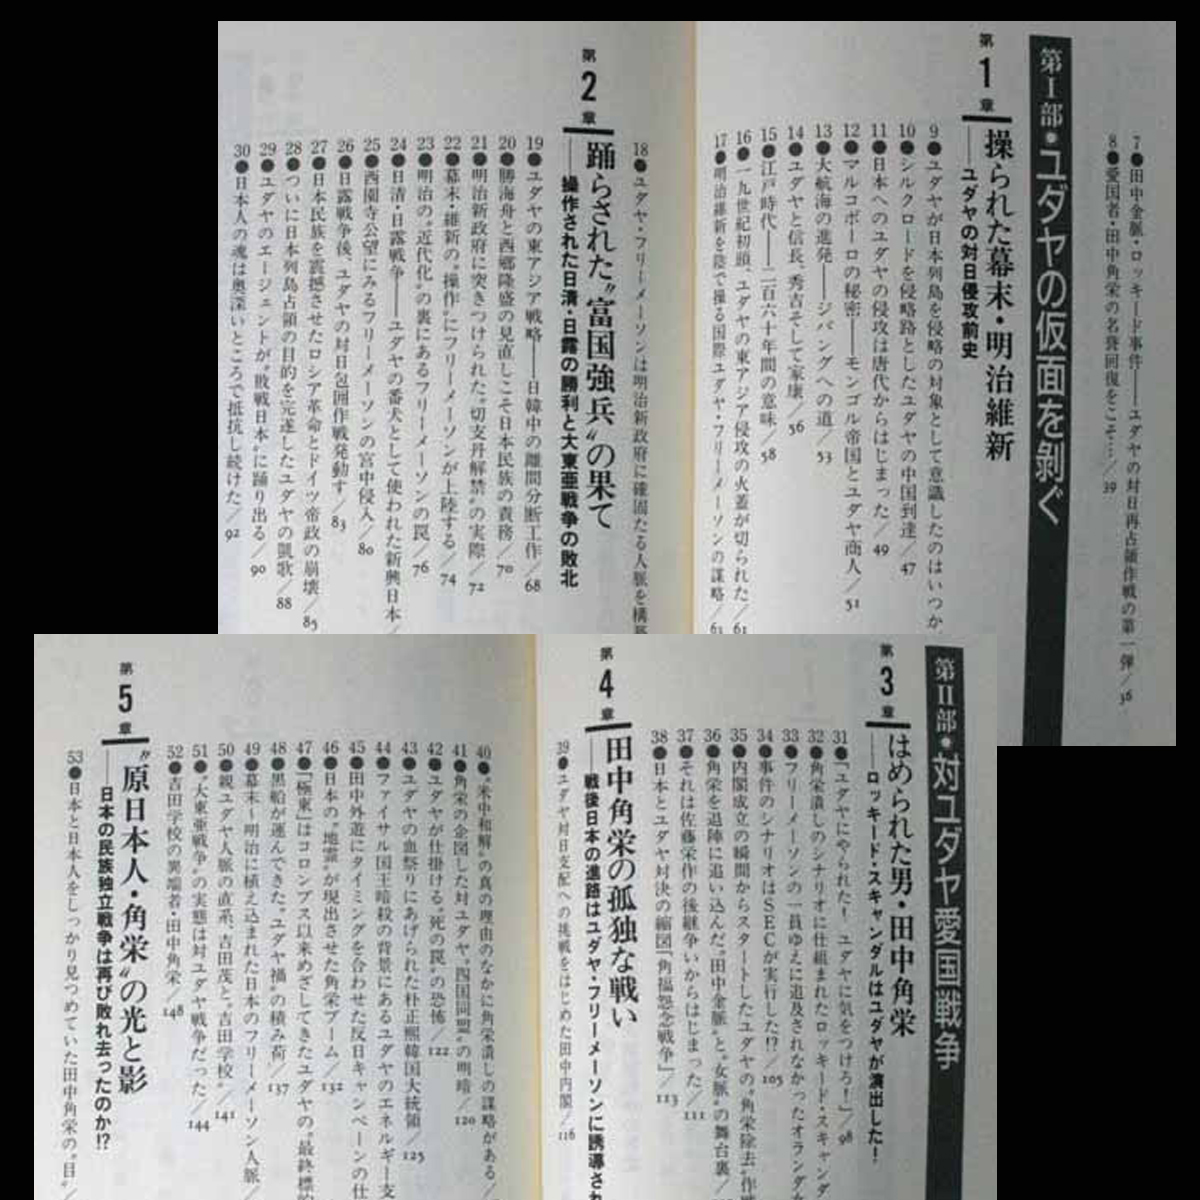 7●田中金脈・ロッキード事件――ユダヤの対日再占領作戦の第一弾／36
8●愛国者・田中角栄の名誉回復をこそ…／39
第Ⅰ部・ユダヤの仮面を剝ぐ
第1章 操られた幕末・明治維新
――ユダヤの対日侵攻前史
9●ユダヤが日本列島を侵略の対象として意識したのはいつか
10●シルクロードを侵略路としたユダヤの中国到達／47
11●日本へのユダヤの侵攻は唐代からはじまった／49
12●マルコポーロの秘密――モンゴル帝国とユダヤ商人／51
13●大航海の進発――ジパングへの道／53
14●ユダヤと信長、秀吉そして家康／56
15●江戸時代――二百六十年間の意味／58
16●一九世紀初頭、ユダヤの東アジア侵攻の火蓋が切られた／61
17●明治維新を陰で操る国際ユダヤ・フリーメーソンの謀略／63
18●ユダヤ・フリーメーソンは明治新政府に確固たる人脈を構築
第2章 踊らされた〝富国強兵〟の果て
――操作された日清・日露の勝利と大東亜戦争の敗北
19●ユダヤの東アジア戦略――日韓中の離間分断工作／68
20●勝海舟と西郷隆盛の見直しこそ日本民族の責務／70
21●明治新政府に突きつけられた〝切支丹解禁〟の実際／72
22●幕末・維新の〝操作〟にフリーメーソンが上陸する／74
23●明治の〝近代化〟の裏にあるフリーメーソンの罠／76
24●日清・日露戦争――ユダヤの番犬として使われた新興日本／
25●西園寺公望にみるフリーメーソンの宮中侵入／80
26●日露戦争後、ユダヤの対日包囲作戦発動す／83
27●日本民族を震撼させたロシア革命とドイツ帝政の崩壊／85
28●ついに日本列島占領の目的を完遂したユダヤの凱歌／88
29●ユダヤのエージェントが〝敗戦日本〟に踊り出る／90
30●日本人の魂は奥深いところで抵抗し続けた／92
第Ⅱ部・対ユダヤ愛国戦争
第3章 はめられた男・田中角栄
――ロッキード・スキャンダルはユダヤが演出した！
31●「ユダヤにやられた！ ユダヤに気をつけろ！」／98
32●角栄潰しのシナリオに仕組まれたロッキード・スキャンダ
33●フリーメーソンの一員ゆえに追及されなかったオランダ
34●事件のシナリオはSECが実行した!?／105
35●内閣成立の瞬間からスタートしたユダヤの〝角栄除去〟作戦
36●角栄を退陣に追い込んだ〝田中金脈〟と〝女脈〟の舞台裏／
37●それは佐藤栄作の後継争いからはじまった／111
38●日本とユダヤ対決の縮図「角福怨念戦争」／113
第4章 田中角栄の孤独な戦い
――戦後日本の進路はユダヤ・フリーメーソンに誘導され
39●ユダヤ対日支配への挑戦をはじめた田中内閣／116
40●〝米中和解〟の真の理由のなかに角栄潰しの謀略がある／
41●角栄の企図した対ユダヤ〝四国同盟〟の明暗／120
42●ユダヤが仕掛ける〝死の罠〟の恐怖／122
43●ユダヤの血祭りにあげられた朴正熙韓国大統領／125
44●ファイサル国王暗殺の背景にあるユダヤのエネルギー支
45●田中外遊にタイミングを合わせた反日キャンペーンの仕
46●日本の〝地霊〟が現出させた角栄ブーム／132
47●「極東」はコロンブス以来めざしてきたユダヤの〝最終標的
48●黒船が運んできた〝ユダヤ禍〟の積み荷／137
49●幕末～明治に植え込まれた日本のフリーメーソン人脈／
50●親ユダヤ人脈の直系、吉田茂と〝吉田学校〟／141
51●〝大東亜戦争〟の実態は対ユダヤ戦争だった／144
52●吉田学校の異端者・田中角栄／148
第5章 〝原日本人・角栄〟の光と影
――日本の民族独立戦争は再び敗れ去ったのか!?
53●日本と日本人をしっかり見つめていた田中角栄の〝目〟／